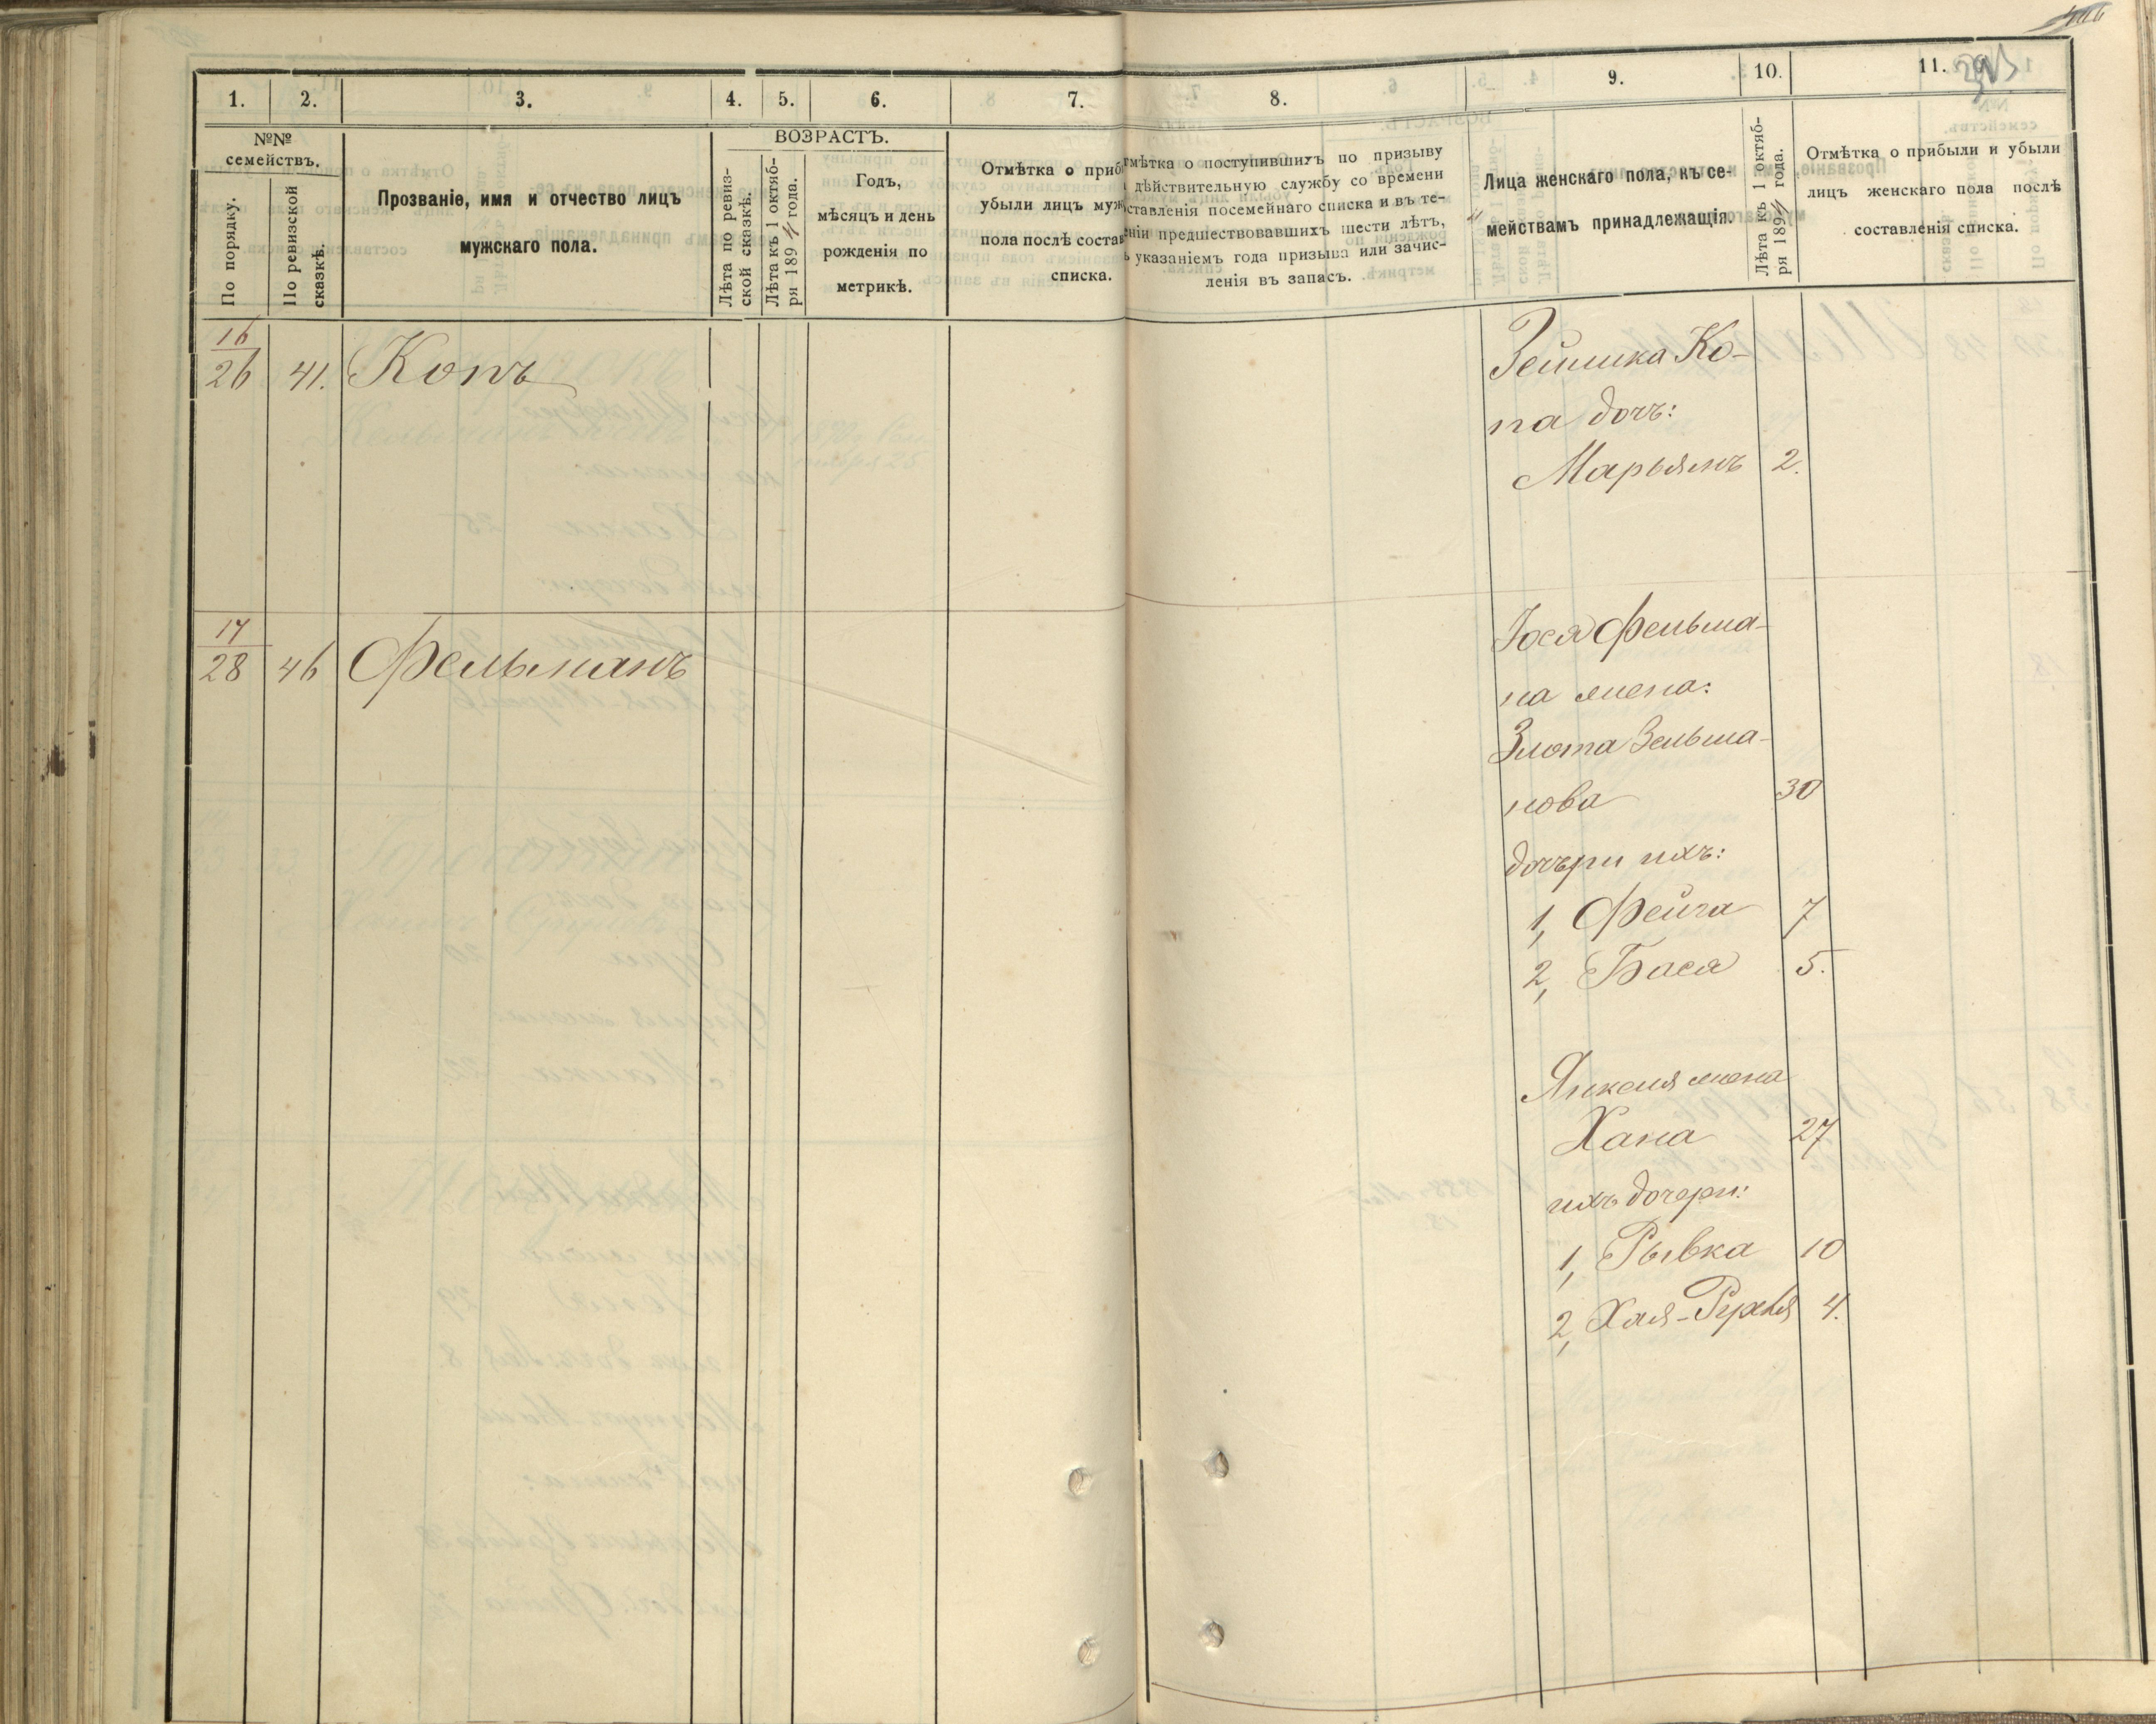 1. 2. 3. 4. 5. 6. 7. 8. 9. 10. 11.
№№ семействъ.
По порядку.
По ревизской сказкѣ.
Прозваніе, имя и отчество лицъ
мужскаго пола.
ВОЗРАСТЪ.
Лѣта по ревиз-
ской сказкѣ.
Лѣта къ 1 октяб-
ря 1894 года.
Годъ,
мѣсяцъ и день
рожденія по
метрикѣ.
Отмѣтка о приб
убыли лицъ муж
пола послѣ состав
списка.
тмѣтка о поступившихъ по призыву
дѣйствительную службу со времени
ставленія посемейнаго списка и въ те-
ніи предшествовавшихъ шести лѣтъ,
ъ указаніемъ года призыва или зачис-
ленія въ запасъ.
Лица женскаго пола, къ се-
мействамъ принадлежащія.
Лѣта къ 1 октяб-
ря 1894 года.
Отмѣтка о прибыли и убыли
лицъ женскаго пола послѣ
составленія списка.
16
26 41. Копъ
Ко-
па дочь:
Марьямъ 2.
17
28 46 Фельманъ
Іося Фельма-
на жена:
Злота Зельма-
нова 30
дочери ихъ:
1, Фейга 7
2, Бася 5.
Янкеля жена
Хана 27
ихъ дочери:
1, Рывка 10
2, Хая-Рухля 4.